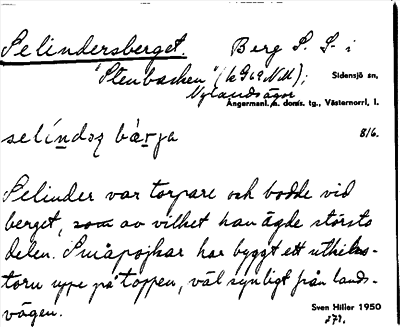 Selindersberget. Berg S. S. i
"Stenbacken" (k G69 NM); Sidensjö sn,
Nylandsägor Ångermanl. s. doms. tg., Västernorrl. l.
selíndəʐ bæ̀rja 8/6.
Selinder var torpare och bodde vid
berget, av vilket han ägde största
delen. Småpojkar har byggt ett utkiks-
torn uppe på toppen, väl synligt från lands-
vägen. Sven Hiller 1950